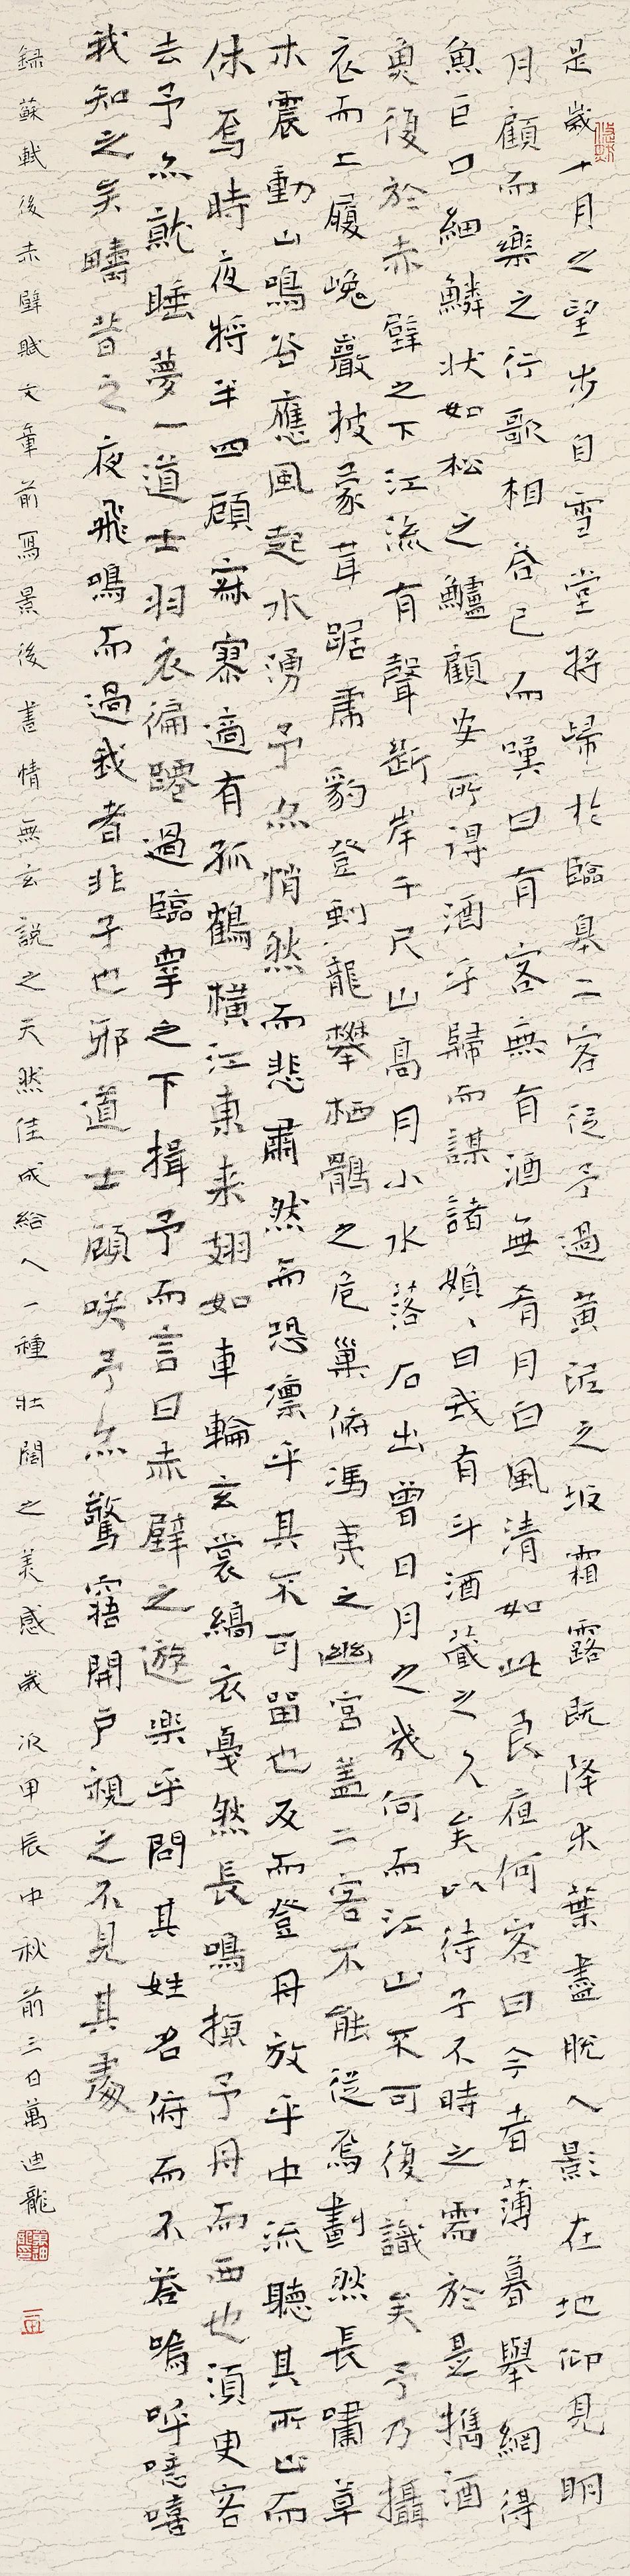 是歲十月之望步自雪堂將歸於臨皋二客從予過黃泥之坂霜露既降木葉盡脫人影在地仰見明
月顧而樂之行歌相答已而嘆曰有客無有酒無肴月白風清如此良夜何客曰今者薄暮舉網得
魚巨口細鱗狀如松之鱸顧安所得酒乎歸而謀諸婦、曰我有斗酒藏之久矣以待子不時之需於是攜酒
與復於赤壁之下江流有聲斷岸千尺山高月小水落石出曾日月之幾何而江山不可復識矣予乃攝
衣而上履巉巖披蒙茸踞虎豹登虬龍攀栖鶻之危巢俯馮夷之幽宮蓋二客不能從焉劃然長嘯草
木震動山鳴谷應風起水湧予亦悄然而悲肅然而恐凜乎其不可留也反而登舟放乎中流聽其所止而
休焉時夜將半四顧寂寥適有孤鶴橫江東來翅如車輪玄裳縞衣戛然長鳴掠予舟而西也須臾客
去予亦就睡夢一道士羽衣徧躚過臨皋之下揖予而言曰赤壁之遊樂乎問其姓名俯而不答嗚呼噫嘻
我知之矣疇昔之夜飛鳴而過我者非子也邪道士顧笑予亦驚寤開戶視之不見其處
錄蘇軾後赤壁賦文章前寫景後書情無玄說之天然佳成給人一種壯闊之美感歲次甲辰中秋前三日萬迪龍